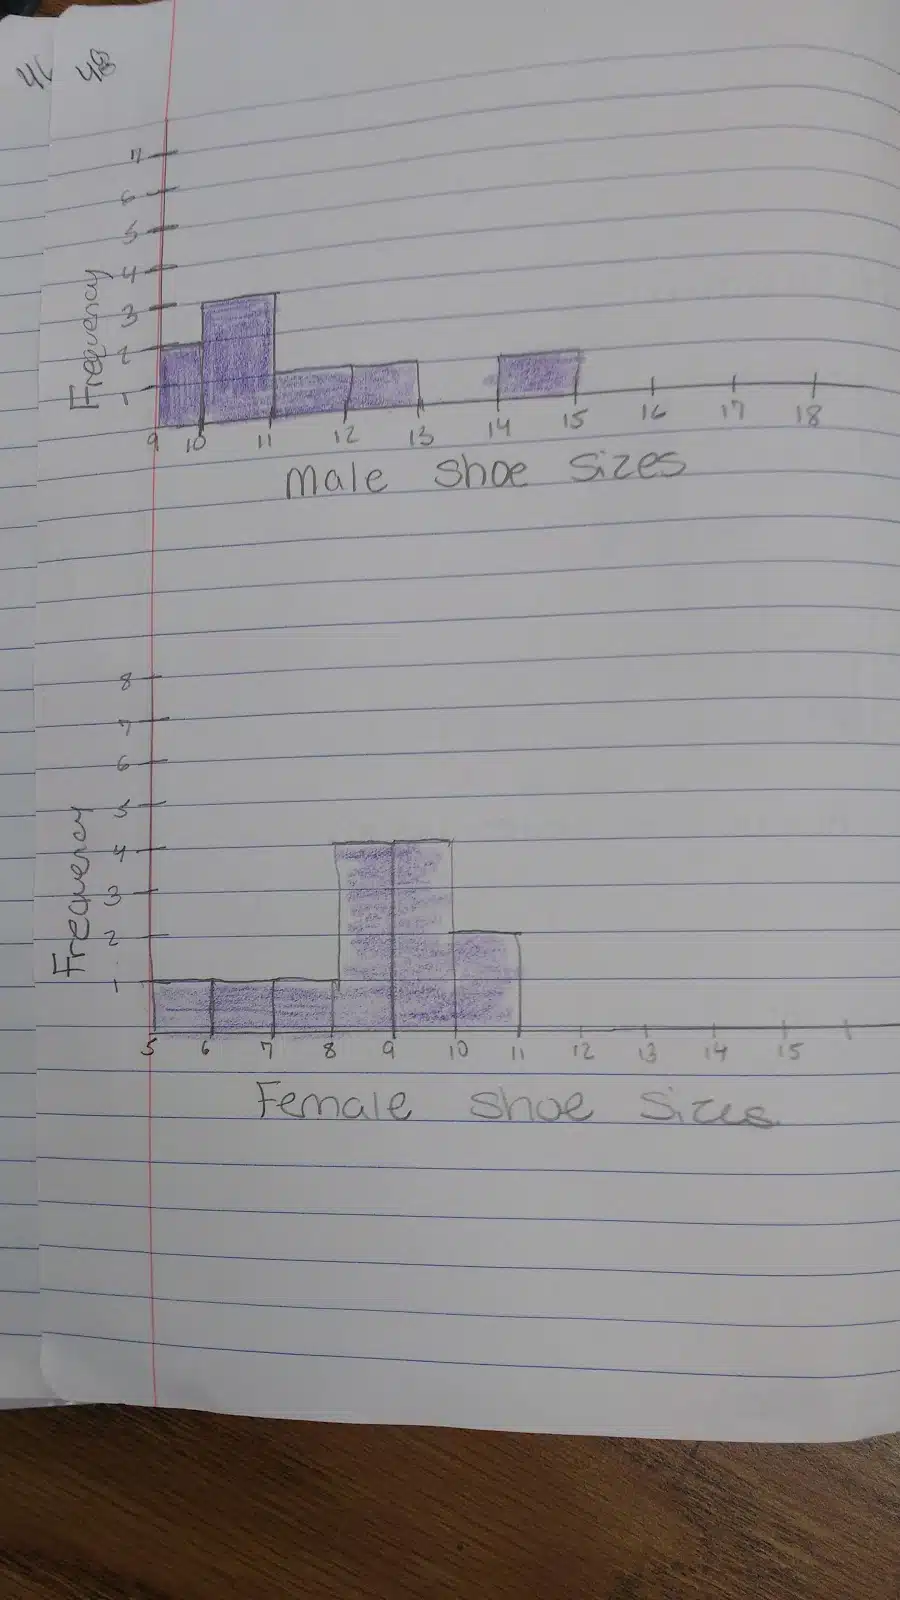 48
7
6
5
4
3
2
1
Frequency
9 10 11 12 13 14 15 16 17 18
male shoe sizes
8
7
6
5
4
3
2
1
Frequency
5 6 7 8 9 10 11 12 13 14 15
Female shoe sizes